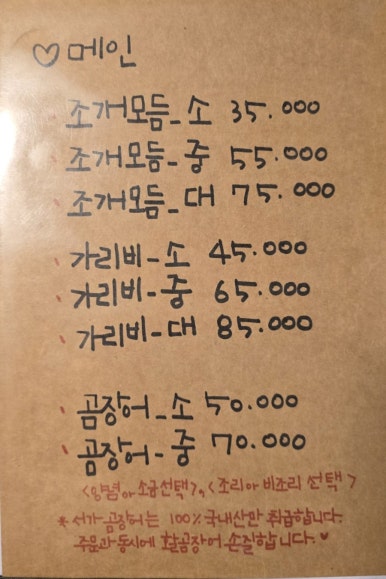 ♡메인
조개모듬_소 35.000
조개모듬_중 55.000
조개모듬_대 75.000
가리비-소 45.000
가리비-중 65.000
가리비-대 85.000
곰장어_소 50.000
곰장어-중 70.000
<양념 or 소금선택>, <조리 or 비조리 선택>
* 서가 곰장어는 100% 국내산만 취급합니다.
주문과 동시에 활곰장어 손질합니다. ♥